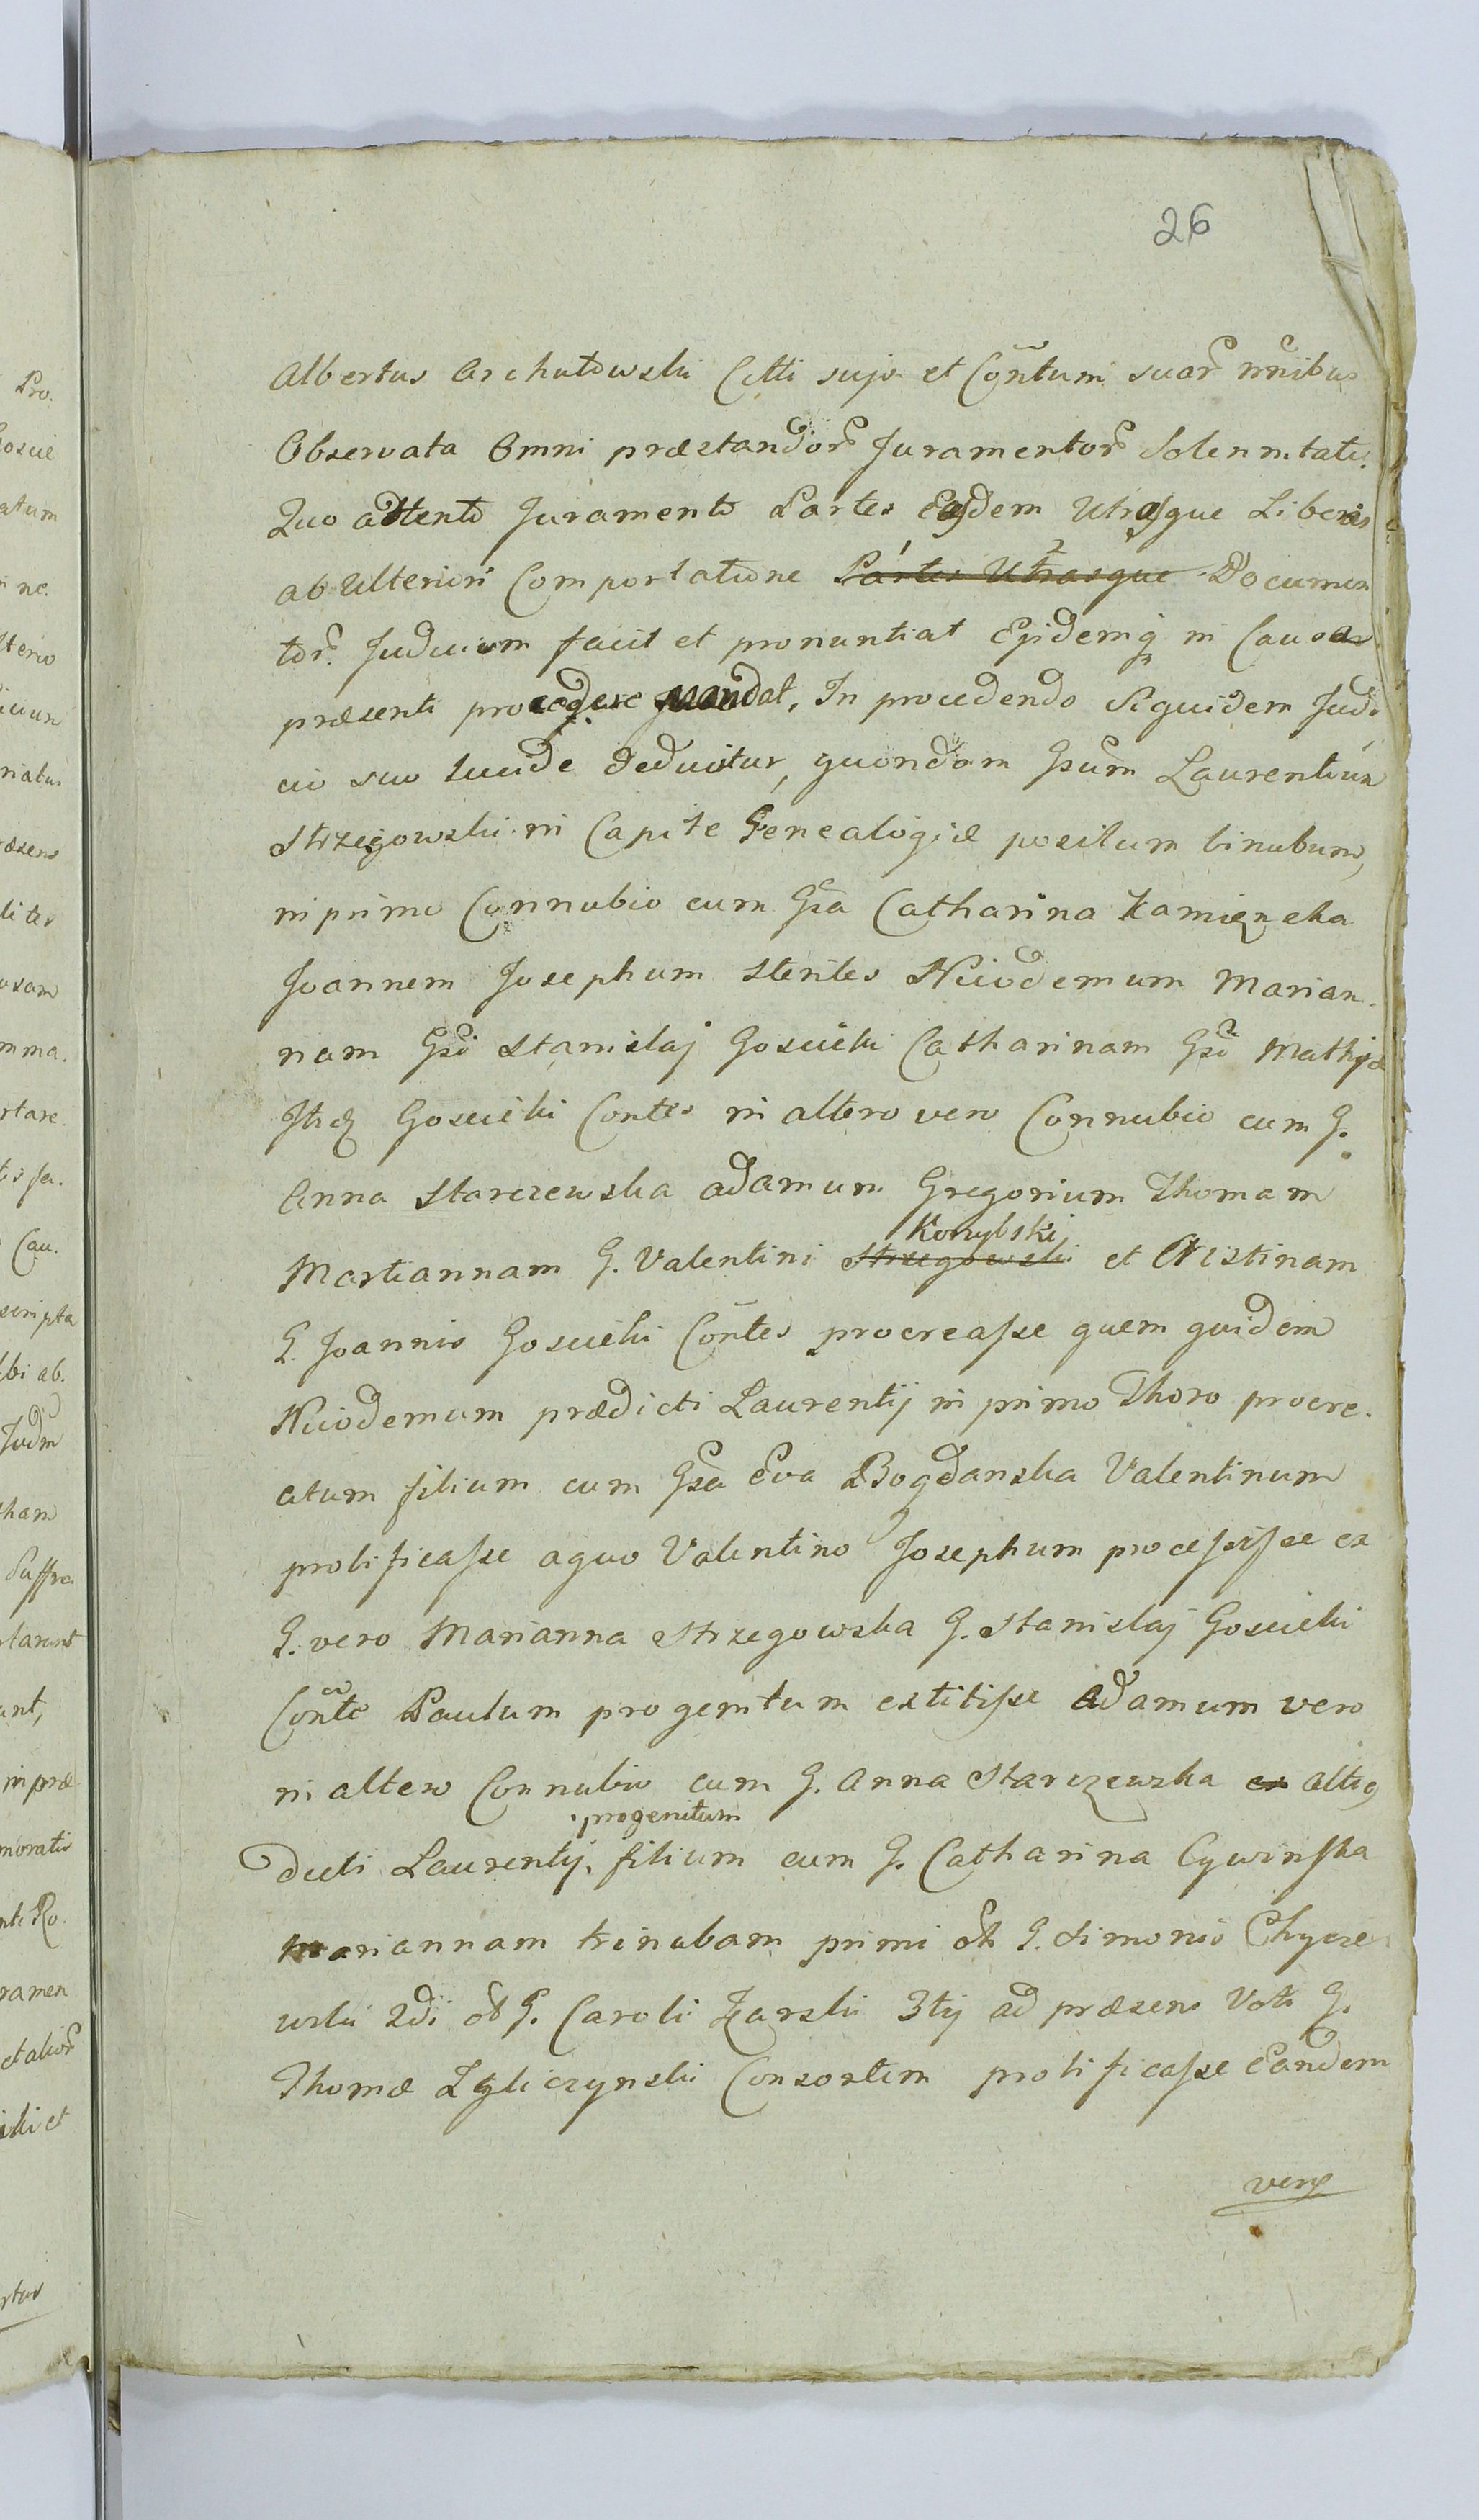 26
Albertus Archutowski Citti suis et Conntum suar nnibus
Observata Omni præstandor Juramentor Solennitate.
Quo attento Juramento Partes Easdem Utrasque Liberas
ab Ulteriori Comportatione Partes Utrasque Documen
tor. Judicium facit et pronuntiat Ejsdemq in Causa
præsenti procedere mandat. In procedendo Siquidem Judi
cio suo lucide deducitur, quondam Gsum Laurentium
Strzegowski in Capite Genealogiæ positum binubum,
in primo Connubio cum Gsa Catharina Kamięnska
Joannem Josephum steriles Nicodemum Marian.
nam Gsi Stanislaj Goscicki Catharinam Gsi Mathiæ
Itidę Goscicki Contes in altero vero Connubio cum G.
Anna Starczewska Adamum Gregorium Thomam
Konybski
Martiannam G. Valentini Strzegowski et Cristinam
G. Joannis Goscicki Contes procreasse quem quidem
Nicodemum prædicti Laurentij in primo Thoro procre.
atum filium cum Gsa Eva Bogdanska Valentinum
prolificasse a quo Valentino Josephum processisse ex
G. vero Marianna Strzegowska G. Stanislaj Goscicki
Conte Paulum progenitum extitisse Adamum vero
in altero Connubio cum G. Anna Starczewska ex alteq
progenitum
dicti Laurentij, filium cum G. Catharina Cywinska
Mariannam trinubam primi oth G. Simonis Chycze
wski 2di oth G. Caroli Karski 3tij ad præsens Voti G.
Thomæ Zgliczynski Consortem prolificasse Eandem
vero